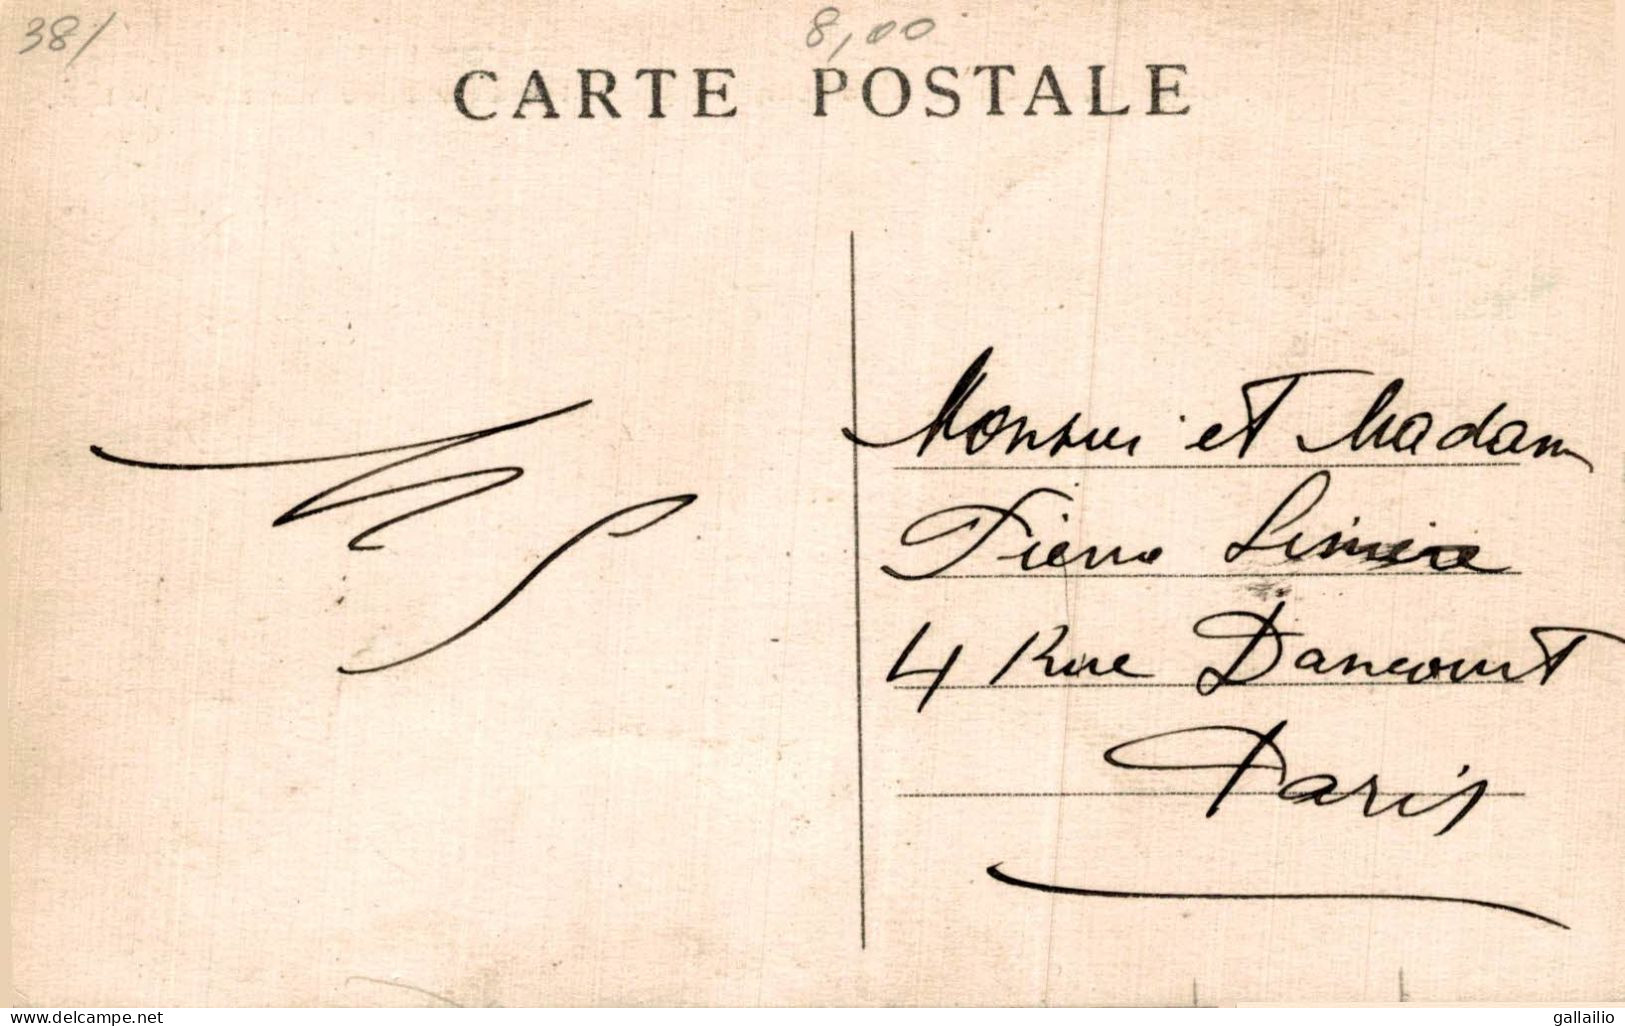 38/
8,00
CARTE POSTALE
Monsieur et Madame
Pierre
4 Rue Dancourt
Paris
www.delcampe.net
gallailio